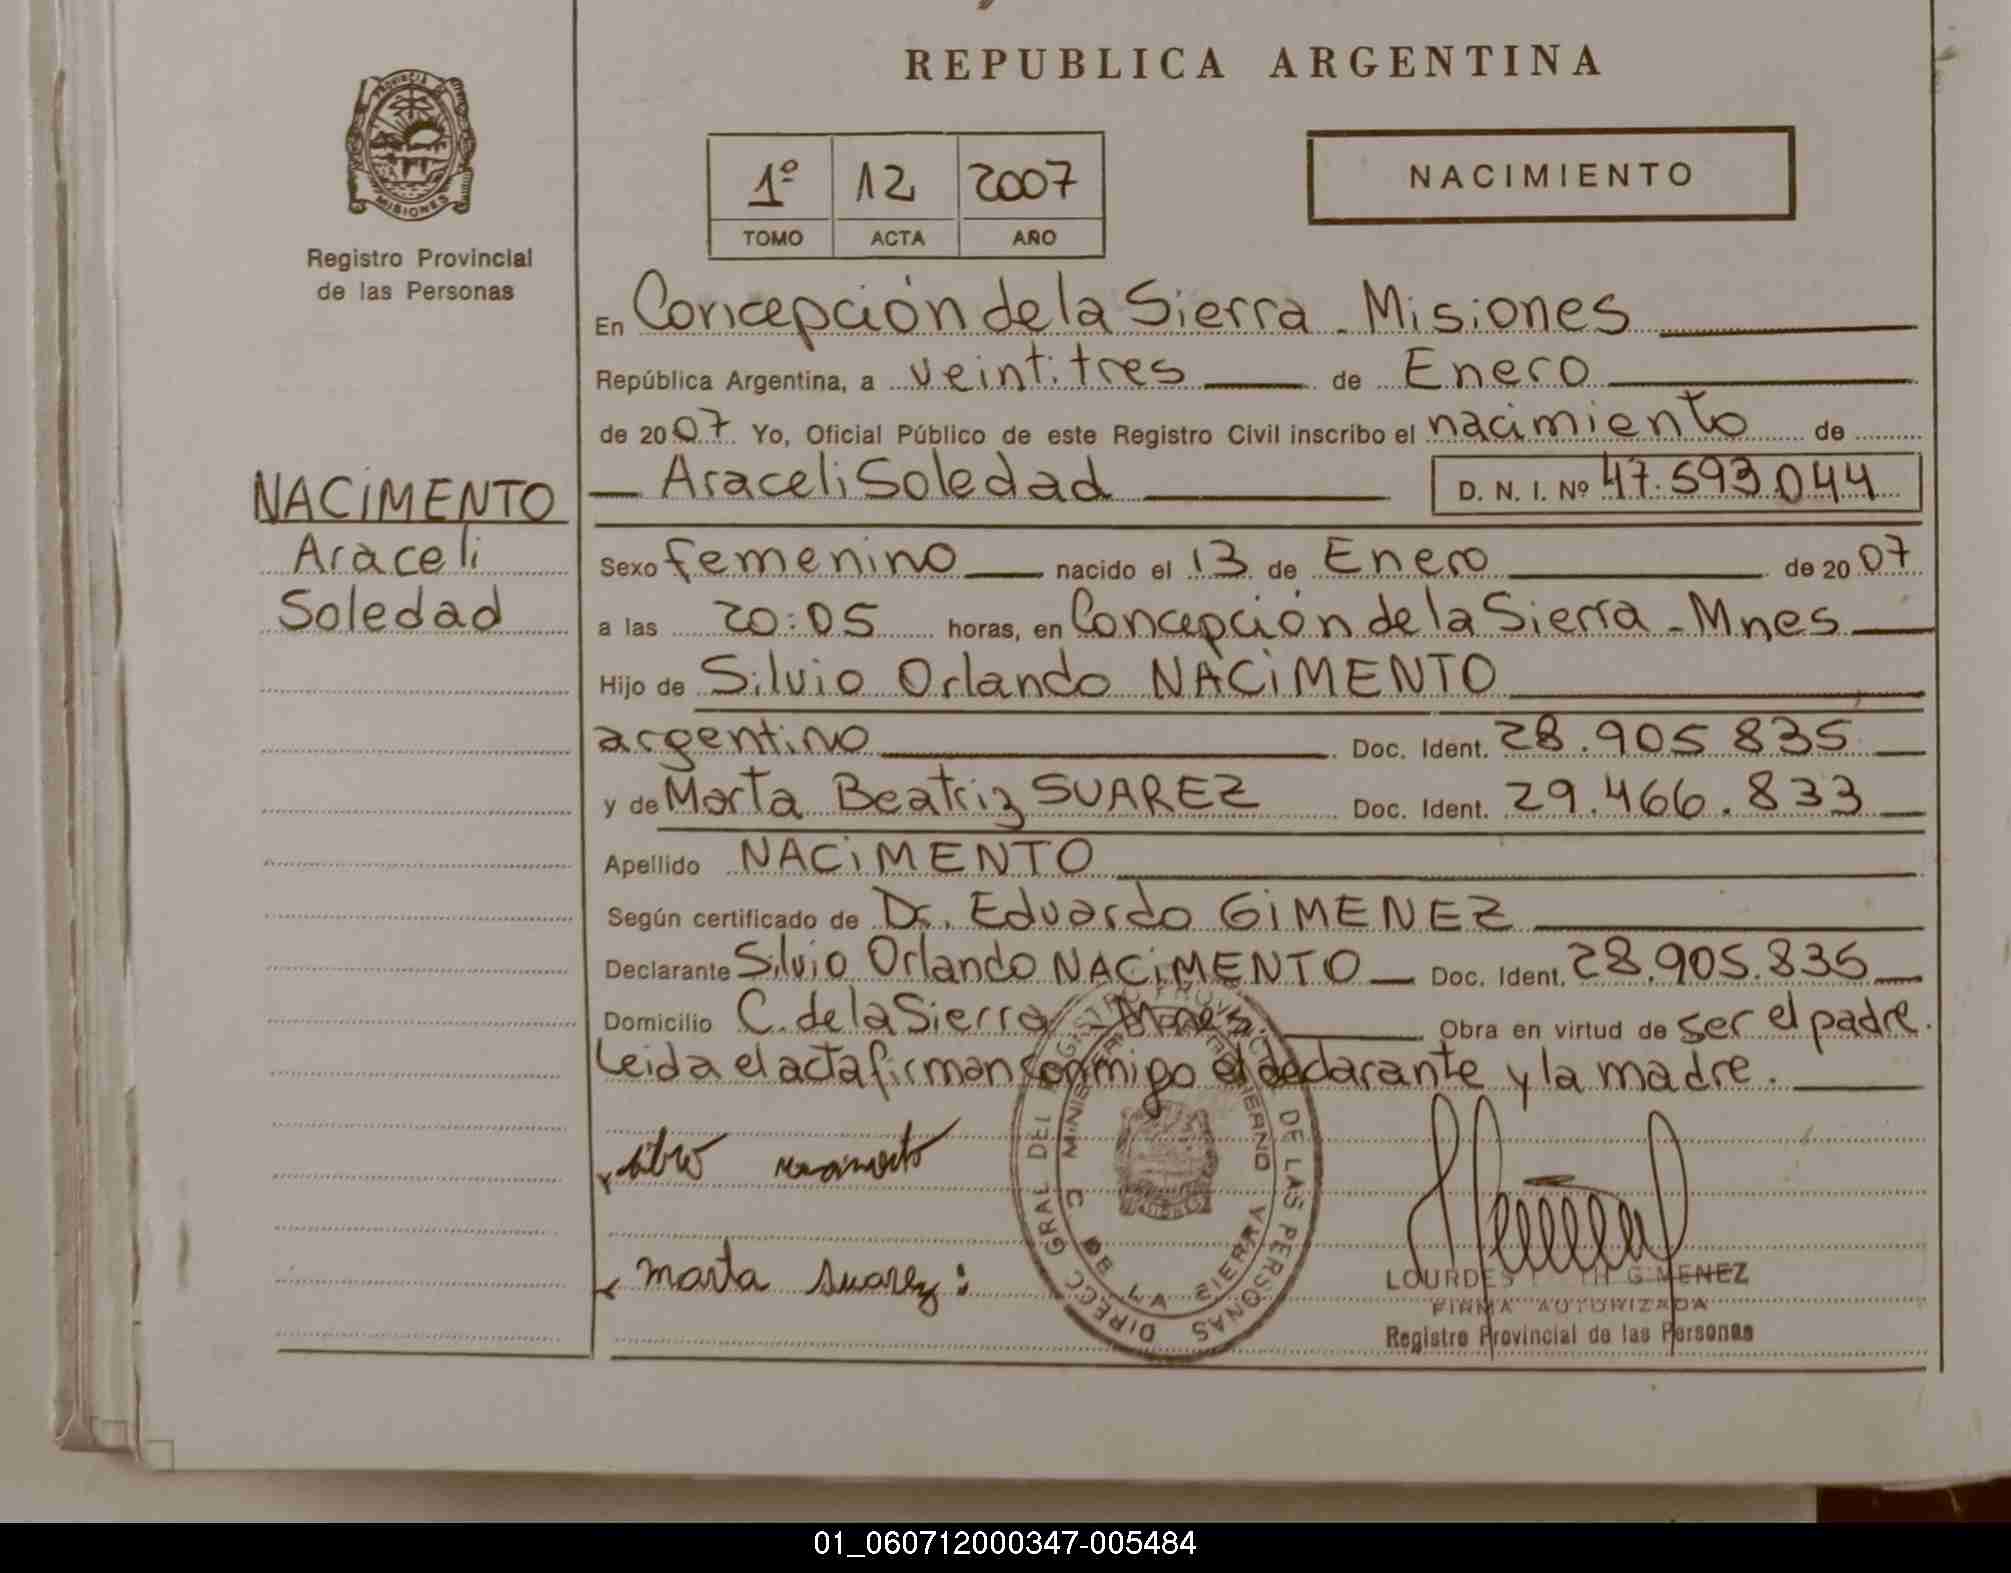 REPUBLICA ARGENTINA
PROVINCIA DE
MISIONES
Registro Provincial
de las Personas
1º 12 2007
TOMO ACTA AÑO
NACIMIENTO
En Concepción de la Sierra - Misiones
República Argentina, a veintitres de Enero
de 2007 Yo, Oficial Público de este Registro Civil inscribo el nacimiento de
Araceli Soledad D. N. I. Nº 47.593.044
NACIMENTO
Araceli
Soledad
Sexo femenino nacido el 13 de Enero de 2007
a las 20:05 horas, en Concepción de la Sierra - Mnes
Hijo de Silvio Orlando NACIMENTO
argentino Doc. Ident. 28.905.835
y de Marta Beatriz SUAREZ Doc. Ident. 29.466.833
Apellido NACIMENTO
Según certificado de Dr. Eduardo GIMENEZ
Declarante Silvio Orlando NACIMENTO Doc. Ident. 28.905.835
Domicilio C. de la Sierra - Mnes. Obra en virtud de ser el padre.
Leida el acta firman conmigo el declarante y la madre.
nacimento
marta suarez:
DIRECC GRAL DEL REGISTRO PROVINCIAL DE LAS PERSONAS
C DE LA SIERRA
LOURDES GIMENEZ
FIRMA AUTORIZADA
Registro Provincial de las Personas
01_060712000347-005484